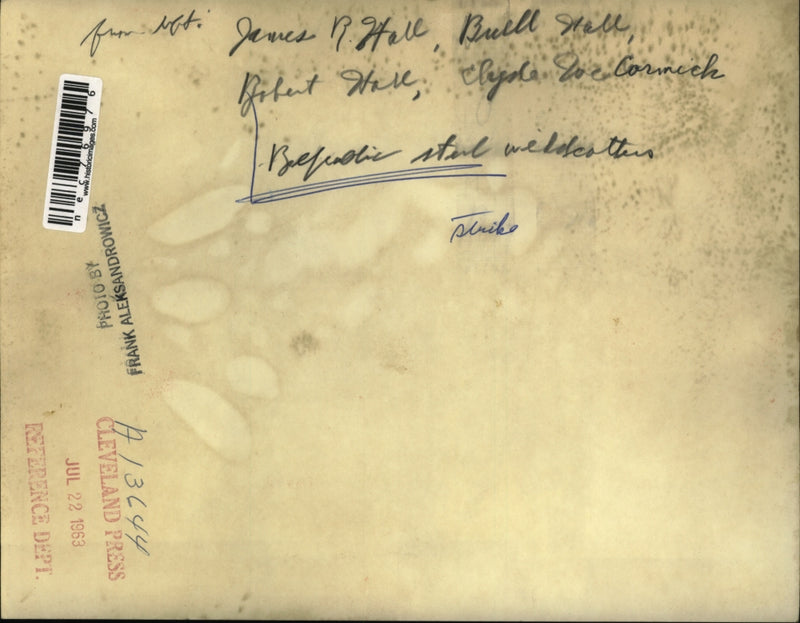 from left: James R. Hall, Buell Hall,
Robert Hall, Clyde McCormick
Republic steel wildcatters
strike
neC76976
www.historicimages.com
PHOTO BY
FRANK ALEKSANDROWICZ
A 13644
CLEVELAND PRESS
JUL 22 1963
REFERENCE DEPT.